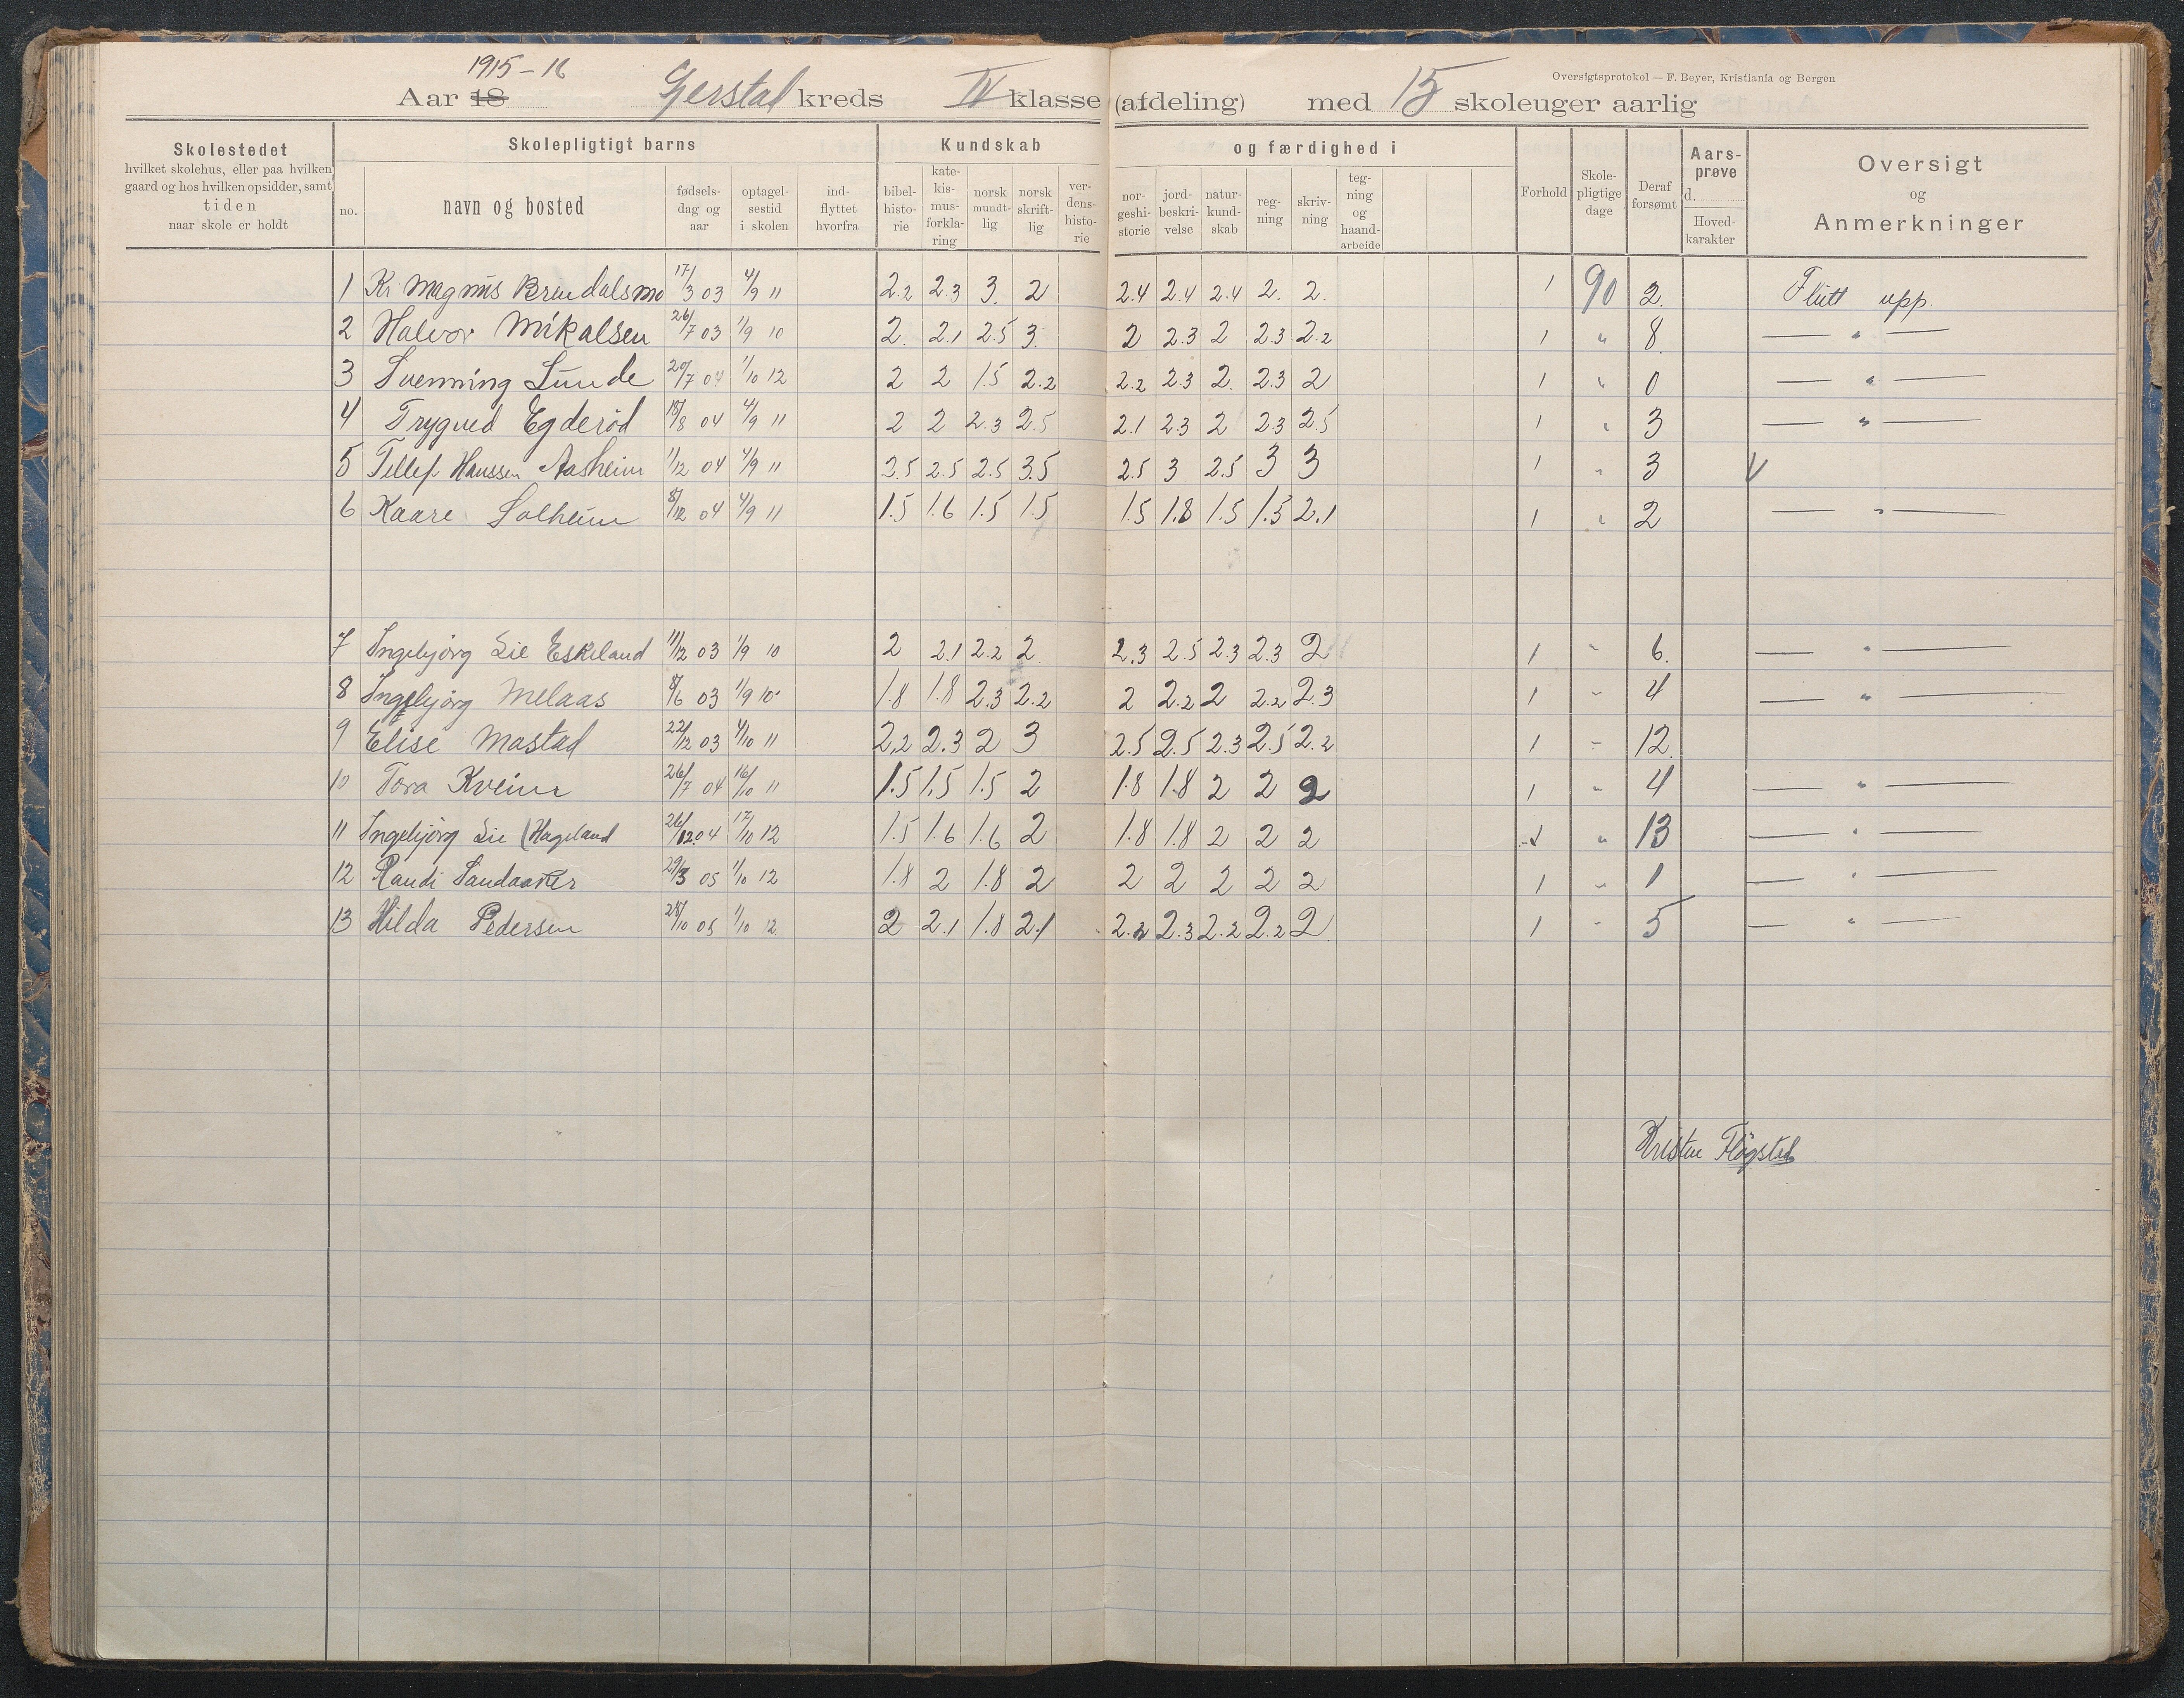 1915-16
Aar 18 Gerstad kreds IV klasse (afdeling) med 15 skoleuger aarlig
Oversigtsprotokol — F. Beyer, Kristiania og Bergen
Skolestedet
hvilket skolehus, eller paa hvilken
gaard og hos hvilken opsidder, samt
tiden
naar skole er holdt
Skolepligtigt barns
no.
navn og bosted
fødsels-
dag og
aar
optagel-
sestid
i skolen
ind-
flyttet
hvorfra
Kundskab
bibel-
histo-
rie
kate-
kis-
mus-
forkla-
ring
norsk
mundt-
lig
norsk
skrift-
lig
ver-
dens-
histo-
rie
og færdighed i
nor-
geshi-
storie
jord-
beskri-
velse
natur-
kund-
skab
reg-
ning
skriv-
ning
teg-
ning
og
haand-
arbeide
Forhold
Skole-
pligtige
dage
Deraf
forsømt
Aars-
prøve
d.
Hoved-
karakter
Oversigt
og
Anmerkninger
1 Kr. Magnus Brendalsmo 17/3 03 4/9 11 2.2 2.3 3. 2 2.4 2.4 2.4 2. 2. 1 90 2. Flütt upp.
2 Halvor Mikalsen 26/7 03 1/9 10 2. 2.1 2.5 3. 2 2.3 2 2.3 2.2 1 " 8. — " —
3 Svenning Lunde 20/7 04 1/10 12 2 2 1.5 2.2 2.2 2.3 2. 2.3 2 1 " 0 — " —
4 Trygved Egderød 18/8 04 4/9 11 2 2 2.3 2.5 2.1 2.3 2 2.3 2.5 1 " 3 — " —
5 Tellef Hanssen Aasheim 1/12 04 4/9 11 2.5 2.5 2.5 3.5 2.5 3 2.5 3 3 1 " 3 V
6 Kaare Solheim 8/12 04 4/9 11 1.5 1.6 1.5 1.5 1.5 1.8 1.5 1.5 2.1 1 " 2 — " —
7 Ingebjørg Lie Eskeland 11/12 03 1/9 10 2 2.1 2.2 2. 2.3 2.5 2.3 2.3 2 1 " 6. — " —
8 Ingebjørg Melaas 8/6 03 1/9 10 1.8 1.8 2.3 2.2 2 2.2 2 2.2 2.3 1 " 4 — " —
9 Elise Mostad 22/12 03 4/10 11 2.2 2.3 2 3 2.5 2.5 2.3 2.5 2.2 1 " 12
10 Tora Kveim 26/7 04 16/10 11 1.5 1.5 1.5 2 1.8 1.8 2 2 2 1 " 4 — " —
11 Ingebjørg Lie (Hageland 26/12 04 17/10 12 1.5 1.6 1.6 2 1.8 1.8 2 2 2 1 " 13 — " —
12 Randi Sandaaker 29/3 05 1/10 12 1.8 2 1.8 2 2 2 2 2 2 1 " 1 — " —
13 Hilda Pedersen 28/10 05 1/10 12 2 2.1 1.8 2.1 2.2 2.3 2.2 2.2 2. 1 " 5 — " —
Kristen Fløgstad